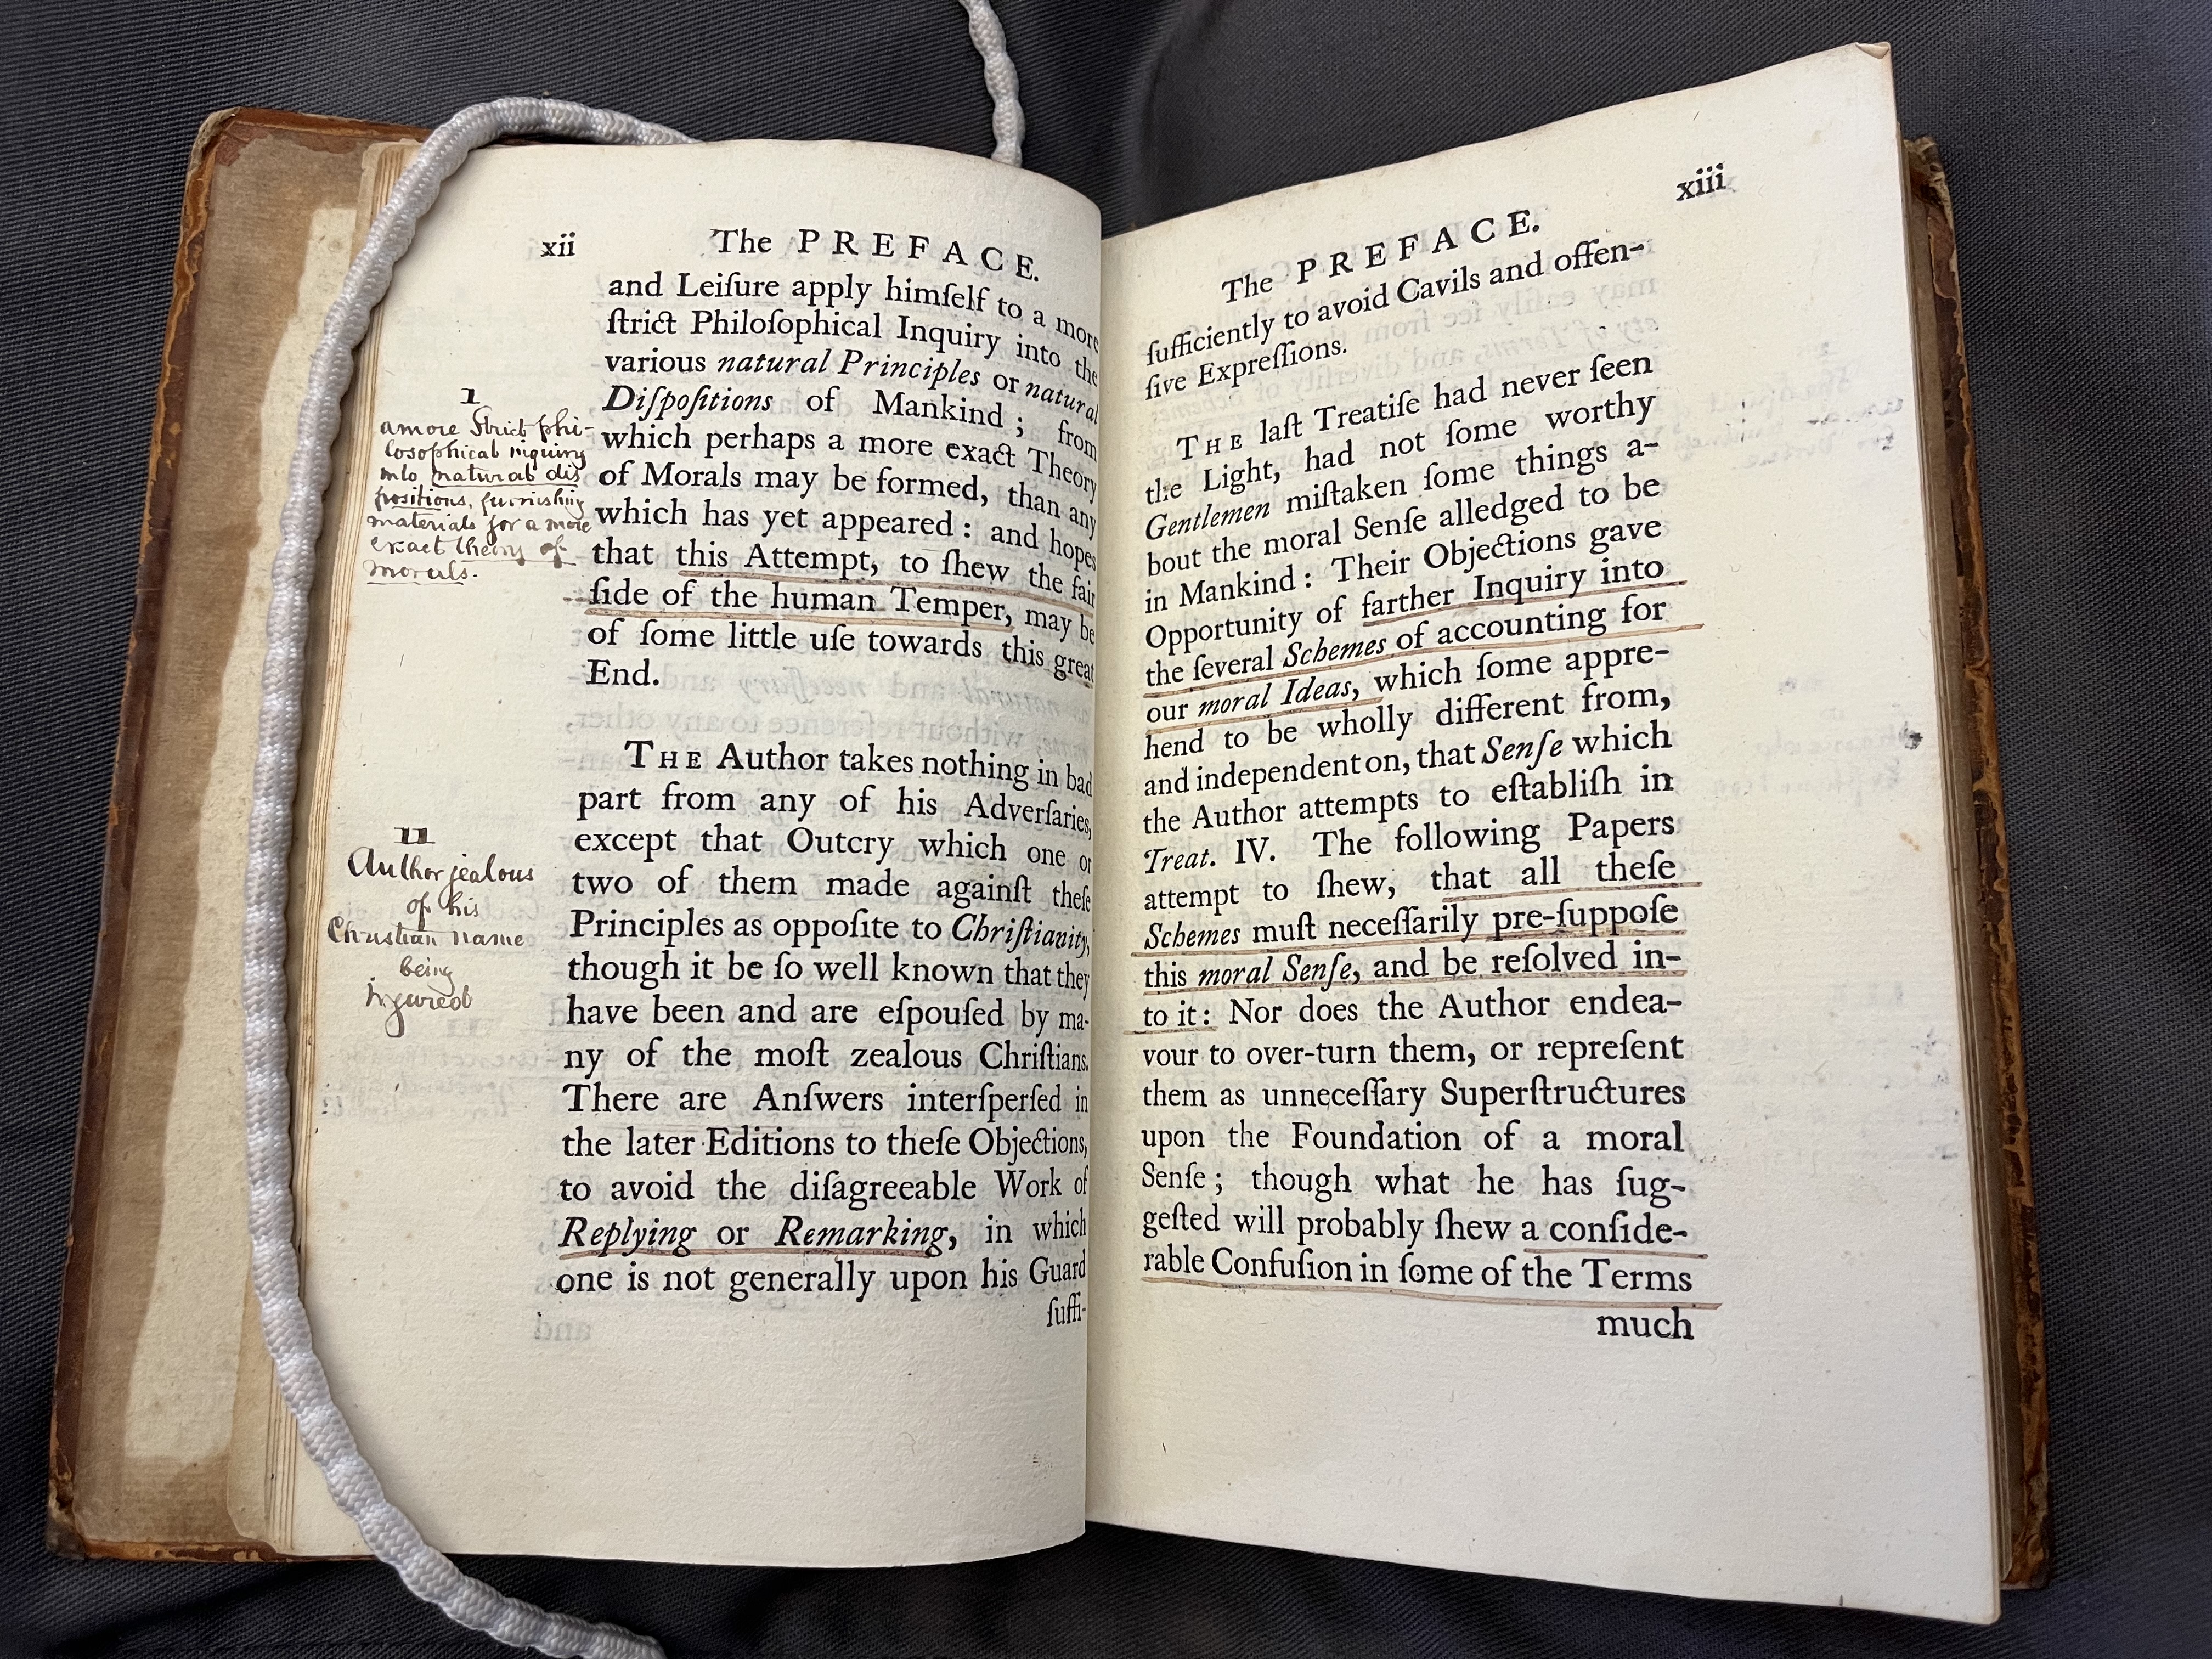 xii
The PREFACE.
and Leiſure apply himſelf to a more
ſtrict Philoſophical Inquiry into the
various natural Principles or natural
Diſpoſitions of Mankind; from
which perhaps a more exact Theory
of Morals may be formed, than any
which has yet appeared: and hopes
that this Attempt, to ſhew the fair
ſide of the human Temper, may be
of ſome little uſe towards this great
End.
THE Author takes nothing in bad
part from any of his Adverſaries,
except that Outcry which one or
two of them made againſt theſe
Principles as oppoſite to Chriſtianity,
though it be ſo well known that they
have been and are eſpouſed by ma-
ny of the moſt zealous Chriſtians.
There are Anſwers interſperſed in
the later Editions to theſe Objections,
to avoid the diſagreeable Work of
Replying or Remarking, in which
one is not generally upon his Guard
ſuffi-
1
a more Strict phi-
losophical inquiry
into natural dis
positions, furnishing
materials for a more
exact theory of
morals.
11
Author jealous
of his
Christian name
being
injured
xiii
The PREFACE.
ſufficiently to avoid Cavils and offen-
ſive Expreſſions.
THE laſt Treatiſe had never ſeen
the Light, had not ſome worthy
Gentlemen miſtaken ſome things a-
bout the moral Senſe alledged to be
in Mankind: Their Objections gave
Opportunity of farther Inquiry into
the ſeveral Schemes of accounting for
our moral Ideas, which ſome appre-
hend to be wholly different from,
and independent on, that Senſe which
the Author attempts to eſtabliſh in
Treat. IV. The following Papers
attempt to ſhew, that all theſe
Schemes muſt neceſſarily pre-ſuppoſe
this moral Senſe, and be reſolved in-
to it: Nor does the Author endea-
vour to over-turn them, or repreſent
them as unneceſſary Superſtructures
upon the Foundation of a moral
Senſe; though what he has ſug-
geſted will probably ſhew a conſide-
rable Confuſion in ſome of the Terms
much